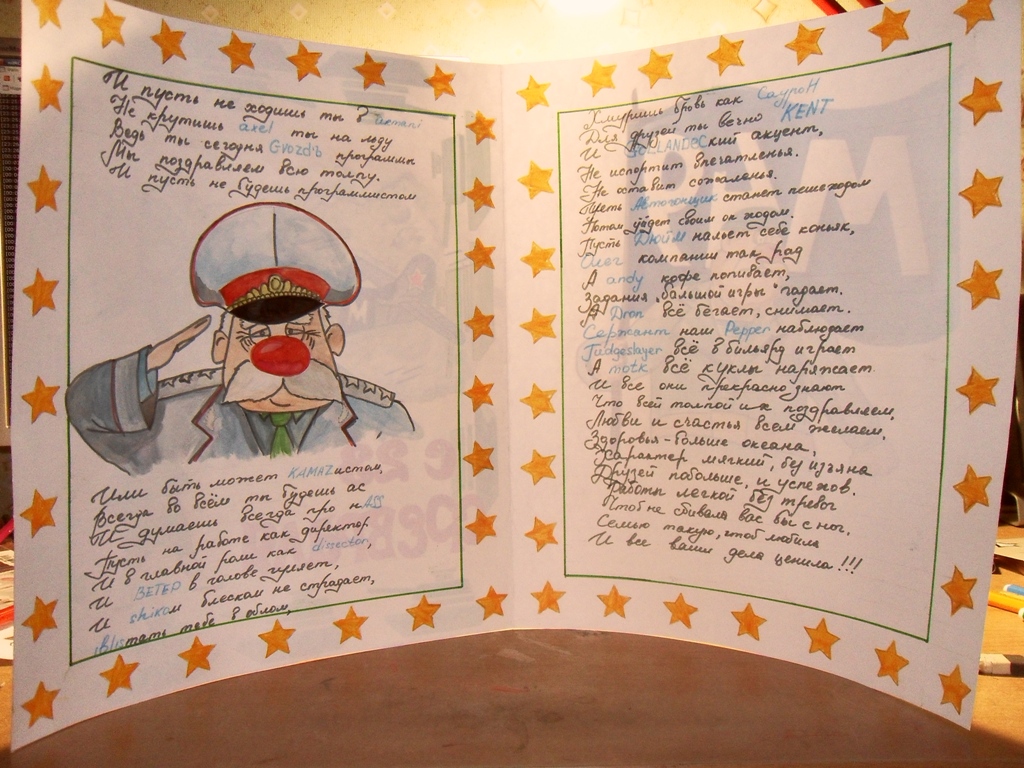 И пусть не ходишь ты в
Не крутишь axel ты на льду
Ведь ты сегодня Gvozdъ программы
Мы поздравляем всю толпу.
И пусть не будешь программистом
Или быть может KAMAZистом,
Всегда во всём ты будешь ас
И думаешь всегда про нASS
Пусть на работе как директор
И в главной роли как dissector,
И ВЕТЕР в голове гуляет,
И shikом блеском не страдает,
iBlisтать тебе в облом,
Хмуришь бровь как СауроН
Для друзей ты вечно KENT
И GOLLANDECкий акцент,
Не испортит впечатленья.
Не оставит сожаленья.
Пусть Автогонщик станет пешеходом
Потом уйдет своим он ходом.
Пусть Дюйм нальет себе коньяк,
Олег компании так рад
А andy кофе попивает,
Задания "большой игры" гадает.
А Dron всё бегает, снимает.
Сержант наш Pepper наблюдает
Judgeslayer всё в бильярд играет
А motk всё куклы наряжает
И все они прекрасно знают
Что всей толпой их поздравляем,
Любви и счастья всем желаем,
Здоровья - больше океана,
Характер мягкий, без изъяна
Друзей побольше, и успехов.
Работы легкой без тревог
Чтоб не сбивала вас бы с ног,
Семью такую, чтоб любила
И все ваши дела ценила!!!